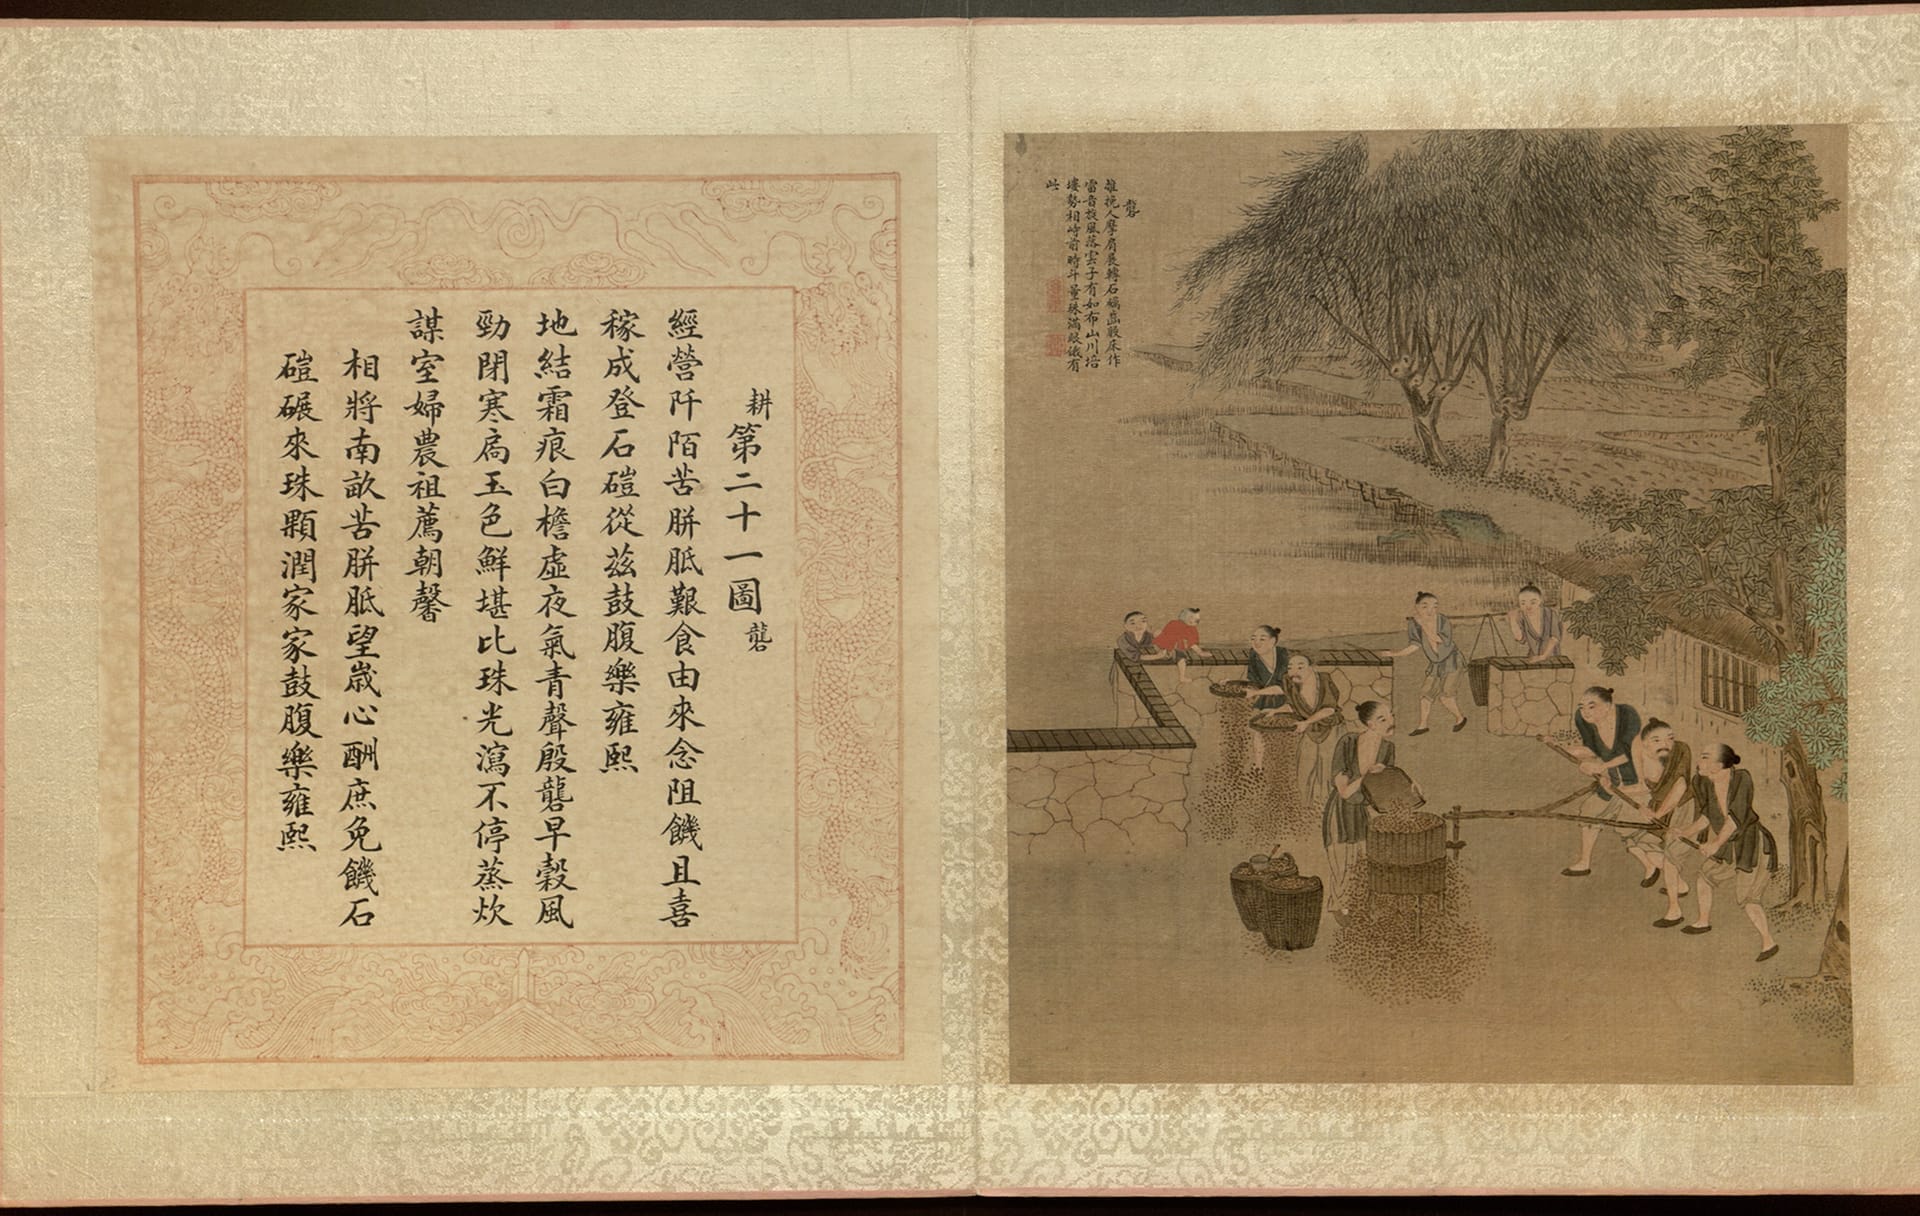 耕第二十一圖礱
經營阡陌苦胼胝艱食由來念阻饑且喜
稼成登石磑從茲鼓腹樂雍熙
地結霜痕白檐虛夜氣青聲殷礱早穀風
勁閉寒扃玉色鮮堪比珠光瀉不停蒸炊
謀室婦農祖薦朝馨
相將南畝苦胼胝望歲心酬庶免饑石
磑碾來珠顆潤家家鼓腹樂雍熙
礱
推挽人摩肩展轉石礪齒殷床作
雷音旋風落雲子有如布山川培
塿勢相峙前時斗量珠滿眼俄有
此